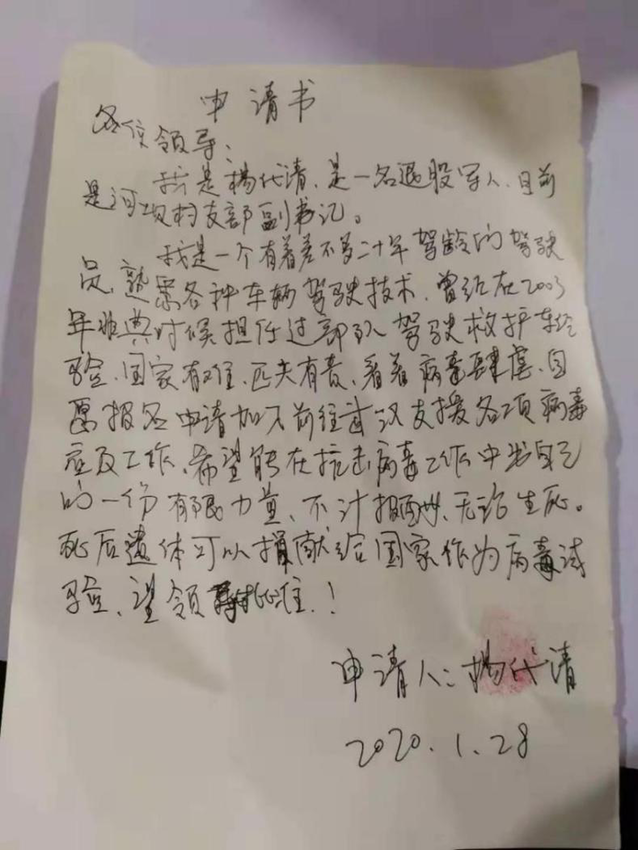 申请书
各位领导:
我是杨代清,是一名退股军人,目前
是河坝村支部副书记。
我是一个有着差不多二十年驾龄的驾驶
员,熟悉各种车辆驾驶技术,曾经在2003
年非典时候担任过部队驾驶救护车经
验,国家有难,匹夫有责,看着病毒肆虐,自
愿报名申请加入前往武汉支援各项病毒
应及工作,希望能在抗击病毒工作中出自己
的一份有限力量、不计报酬、无论生死。
死后遗体可以捐献给国家作为病毒试
验、望领批准!
申请人:杨代清
2020.1.28